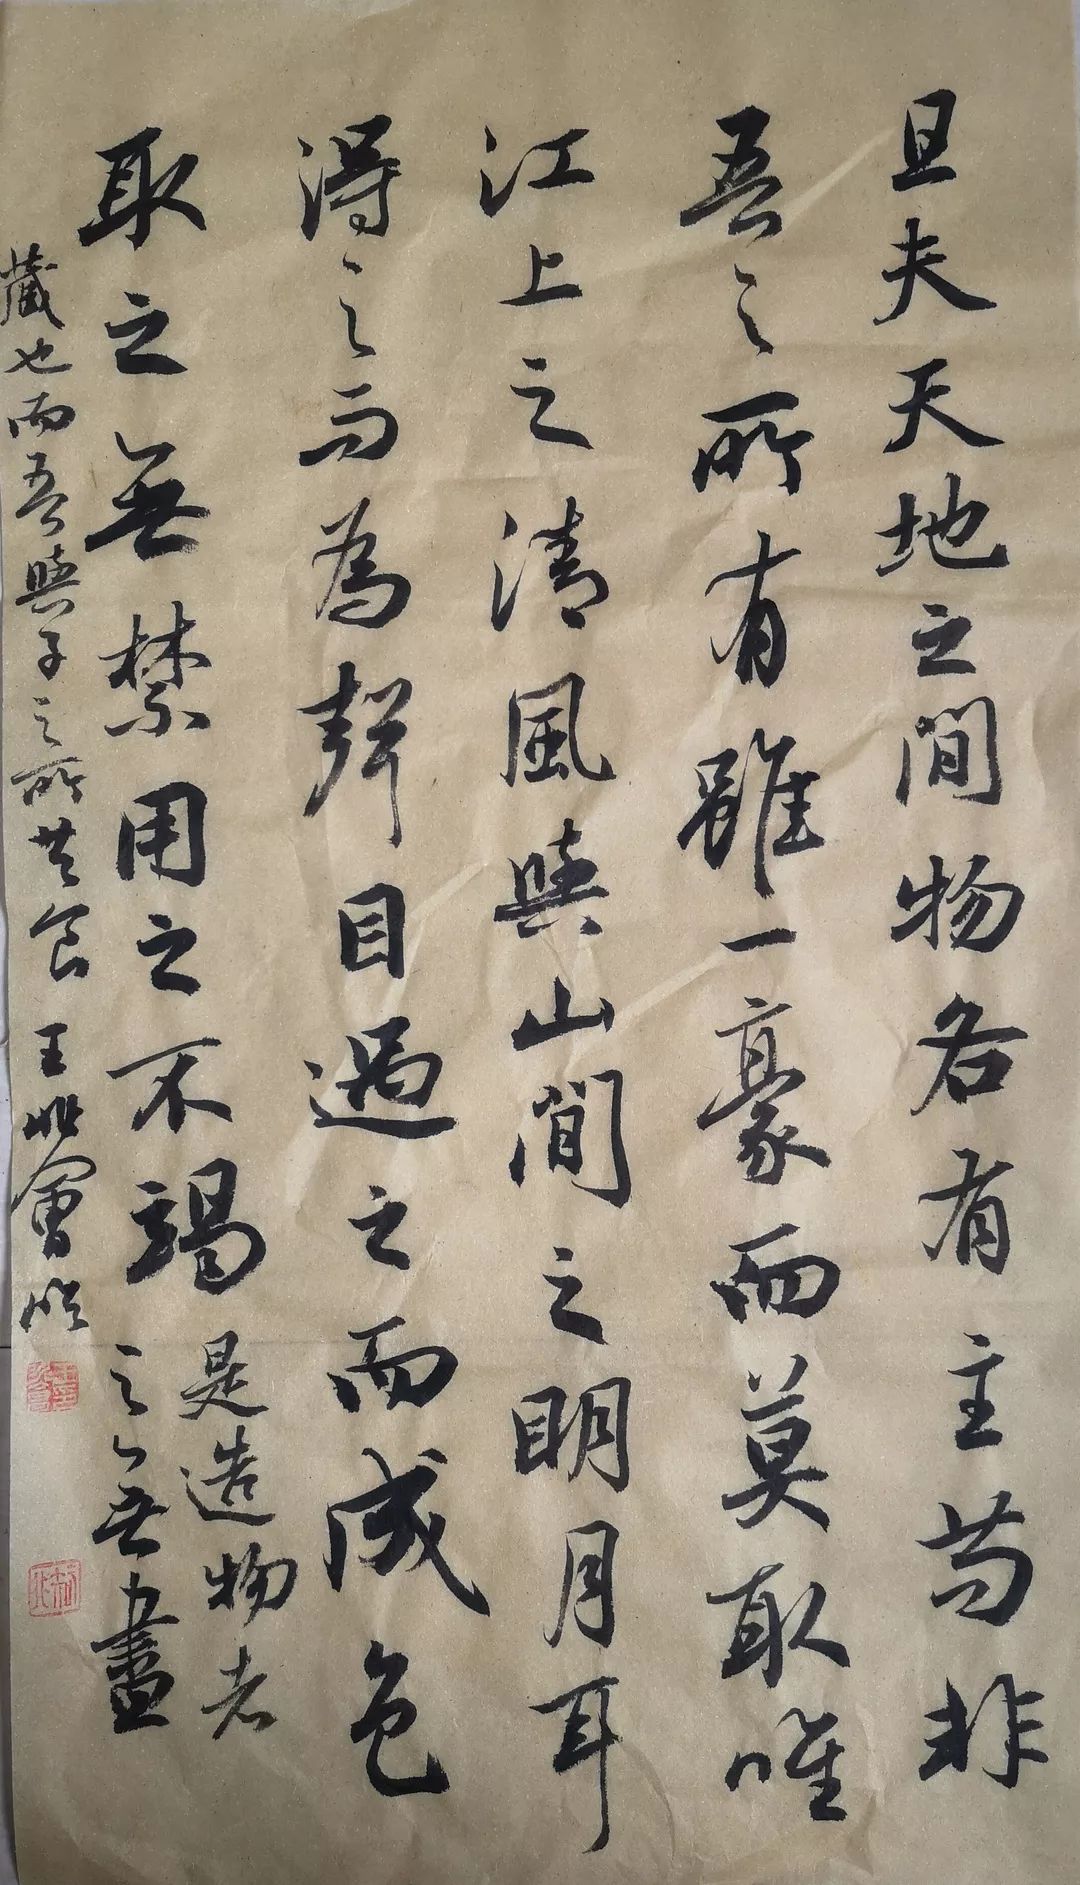 且夫天地之間物各有主苟非
吾之所有雖一豪而莫取唯
江上之清風與山間之明月耳
得之而為聲目遇之而成色
取之無禁用之不竭
是造物者
之無盡
藏也而吾與子之所共食
王會